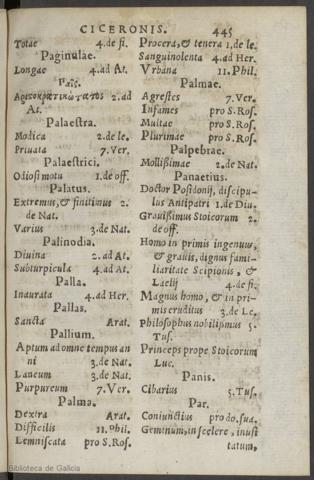 CICERONIS. 445
Totae 4.de fi.
Paginulae.
Longae 4.ad At.
Παῖς.
Αριστοκρατικώτατος 2.ad
At.
Palaestra.
Modica 2.de le.
Priuata 7.Ver.
Palaestrici.
Odiosi motu 1.de off.
Palatus.
Extremus, & finitimus 2.
de Nat.
Varius 3.de Nat.
Palinodia.
Diuina 2.ad At.
Subturpicula 4.ad At.
Palla.
Inaurata 4.ad Her.
Pallas.
Sancta Arat.
Pallium.
Aptum ad omne tempus an
ni 3.de Nat.
Laneum 3.de Nat.
Purpureum 7.Ver.
Palma.
Dextra Arat.
Difficilis 11.Phil.
Lemniscata pro S.Ros.
Procera, & tenera 1.de le.
Sanguinolenta 4.ad Her.
Vrbana 11.Phil.
Palmae.
Agrestes 7.Ver.
Infames pro S.Ros.
Multae pro S.Ros.
Plurimae pro S.Ros.
Palpebrae.
Mollissimae 2.de Nat.
Panaetius.
Doctor Posidonij, discipu-
lus Antipatri 1.de Diu.
Grauissimus Stoicorum 2.
de off.
Homo in primis ingenuus,
& grauis, dignus fami-
liaritate Scipionis, &
Laelij 4.de fi.
Magnus homo, & in pri-
mis eruditus 3.de Le.
Philosophus nobilissimus 5.
Tus.
Princeps prope Stoicorum
Luc.
Panis.
Cibarius 5.Tus.
Par.
Coniunctius pro do.sua.
Geminum, in scelere, inusi
tatum,
Biblioteca de Galicia